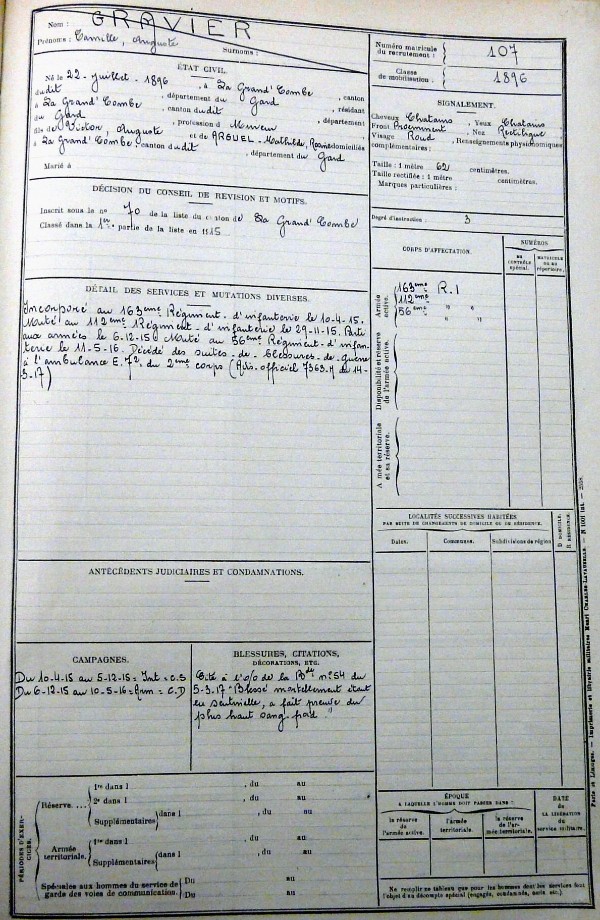 Nom : GRAVIER
Prénoms : Camille, Auguste
Surnoms :
ÉTAT CIVIL.
Né le 22 - juillet - 1896 , à La Grand' Combe , canton
dudit , département du Gard , résidant
à La Grand' Combe , canton dudit , département
du Gard , profession d Mineur
fils de Victor, Auguste et de ARGUEL - Mathilde, Rosine domiciliés
à La Grand' Combe , canton dudit , département du Gard
Marié à
DÉCISION DU CONSEIL DE REVISION ET MOTIFS.
Inscrit sous le n° 70 de la liste du canton de La Grand' Combe
Classé dans la 1re partie de la liste en 1915
DÉTAIL DES SERVICES ET MUTATIONS DIVERSES.
Incorporé au 163ème Régiment - d'infanterie le 10-4-15.
Muté au 112ème Régiment - d'infanterie le 29-11-15. Parti
aux armées le 6-12-15. Muté au 56ème Régiment - d'infan-
terie le 11-5-16. Décédé des suites - de - blessures - de - guerre
à l'ambulance E. 72. du 2ème corps (Avis - officiel 7363.M du 14-
3-17)
ANTÉCÉDENTS JUDICIAIRES ET CONDAMNATIONS.
CAMPAGNES.
Du 10-4-15 au 5-12-15 = Int = C.S
Du 6-12-15 au 10-5-16 = Arm = C.D
BLESSURES, CITATIONS,
DÉCORATIONS, ETC.
Cité à l'o/o de la Bde n° 54 du
5-3-17 "Blessé mortellement étant
en sentinelle, a fait preuve du
plus haut sang froid"
PÉRIODES D'EXER-
CICES.
Réserve....
1re dans l , du au
2e dans l , du au
Supplémentaires dans l , du au
Armée
territoriale.
1re dans l , du au
Supplémentaires dans l , du au
Spéciales aux hommes du service de
garde des voies de communication.
Du au
Du au
Numéro matricule
du recrutement :
107
Classe
de mobilisation :
1896
SIGNALEMENT.
Cheveux Chatains Yeux Chatains
Front Proeminent , Nez Rectiligne
Visage Rond , Renseignements physionomiques
complémentaires :
Taille : 1 mètre 62 centimètres.
Taille rectifiée : 1 mètre centimètres.
Marques particulières :
Degré d'instruction : 3
CORPS D'AFFECTATION.
NUMÉROS
AU
CONTRÔLE
spécial.
MATRICULE
OU AU
répertoire.
Armée
active.
163ème R.I
112ème " "
56ème " "
Disponibilité et réserve
de l'armée active.
Armée territoriale
et sa réserve.
LOCALITÉS SUCCESSIVES HABITÉES
PAR SUITE DE CHANGEMENTS DE DOMICILE OU DE RÉSIDENCE.
Dates.
Communes.
Subdivisions de région
D DOMICILE.
R RÉSIDENCE.
ÉPOQUE
A LAQUELLE L'HOMME DOIT PASSER DANS :
la réserve
de
l'armée active.
l'armée
territoriale.
la réserve
de l'ar-
mée territoriale.
DATE
de
LA LIBÉRATION
du
service militaire.
Ne remplir ce tableau que pour les hommes dont les services font
l'objet d'un décompte spécial (engagés, condamnés, omis etc.).
Paris et Limoges. — Imprimerie et librairie militaires Henri CHARLES-LAVAUZELLE.